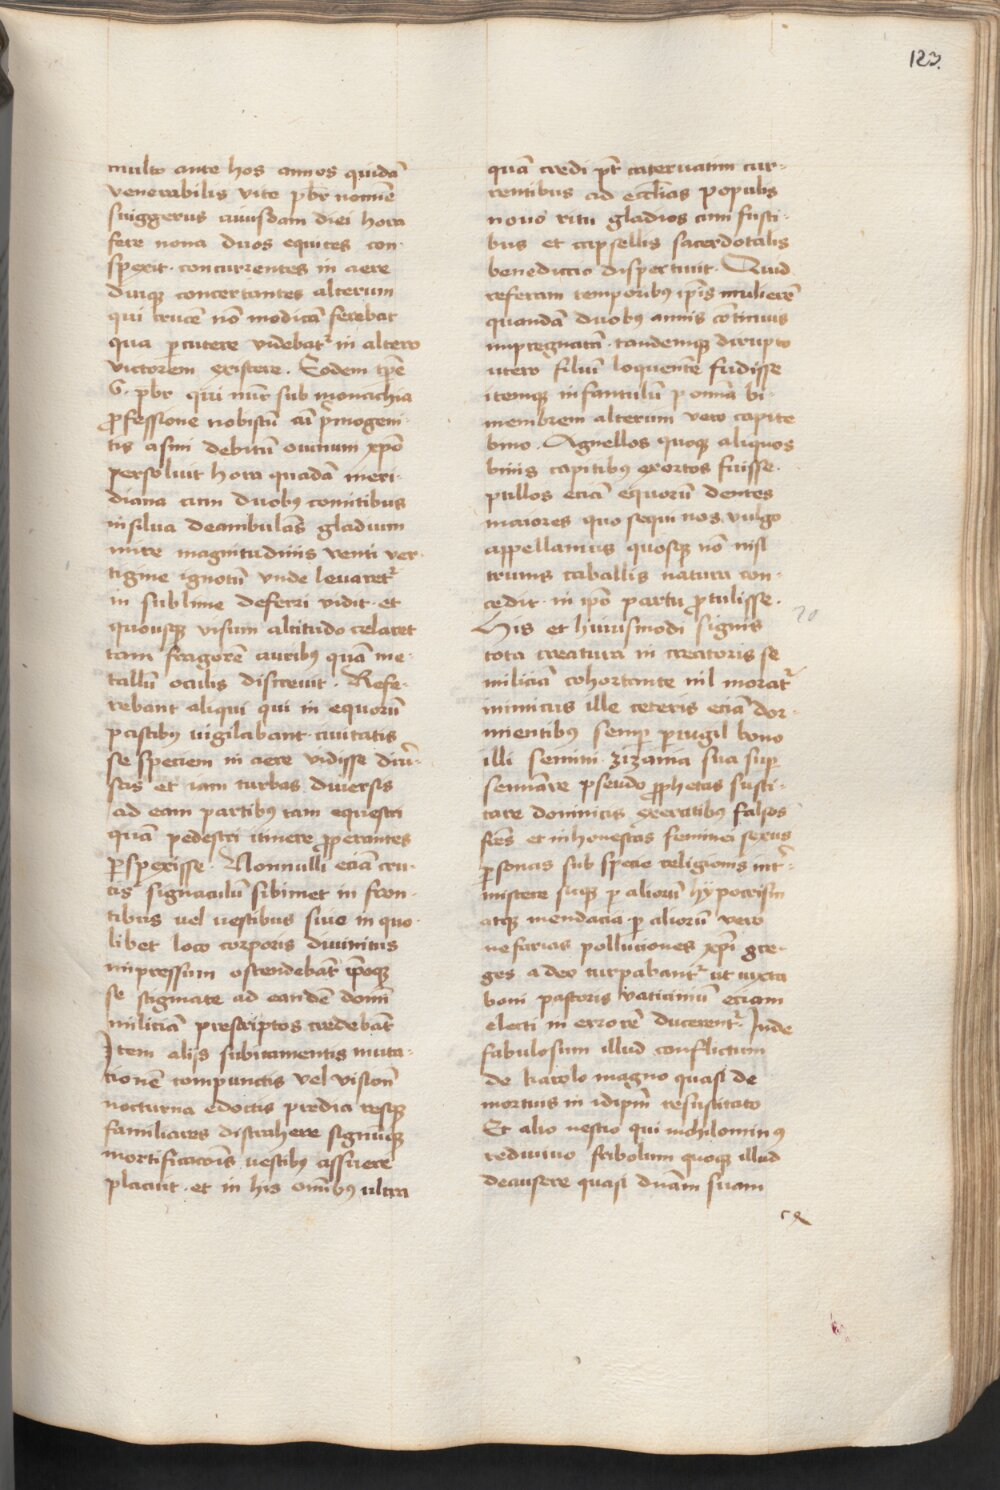 123
multo ante hos annos quidā
venerabilis vite pbr̄ nomīe
suiggerus cuiusdam diei hora
fere nona duos equites con
spexit · concurrentes in aere
diuqꝫ concertantes alterum
qui crucē nō modicā ferebat
qua ꝑcutere videbatᷣ in altero
victorem existere . Eodem tꝑe
G · pbr̄ qui nūc sub monachia
ꝓfessione nobiscū cū pͥmogeni
tis asini debitū ouinum xp̄o
persoluit hora quadā meri
diana cum duobus comitibus
in silua deambulās gladium
mire magnitudinis venti ver
tigine ignotū vnde leuaretᷣ
in sublime deferri vidit · et
quousqꝫ visum altitudo celaret
tam fragorē auribꝰ quā me
tallū oculis discreuit . Refe
rebant aliqui qui in equorū
pastibꝰ vigilabant · ciuitatis
se speciem in aere vidisse diū
scis et iam turbas diuersis
ad eam partibus tam equestri
quā pedestri itinere ꝓperantes
ꝑspexisse · Nonnulli eciā cru
cis signaculū sibimet in fron
tibus vel vestibus siue in quo
libet loco corporis diuinitus
impressum ostendebāt ipōqꝫ
se stigmate ad eandē domī
miliciā prescriptos credebāt
Item alijs subitamentis muta
tionē compunctis vel visionē
nocturna edoctis predia resqꝫ
familiares distrahere signūqꝫ
mortificacōis vestibꝰ assuere
placuit · et in his omībꝰ ultra
quā credi pt̄ cateruatim cur
rentibus ad eccl̄ias populis
nouo ritu gladios cum fusti
bus et capsellis sacerdotalis
benediccio dispertiuit · Quid
referam temporibꝰ ip̄is mulierē
quandā duobꝰ annis cōtinuis
impregnatā · tandemqꝫ dirupto
utero filiū loquentē fudisse
itemqꝫ infantulū ꝑ omīa bi
membrem alterum vero capite
bino · Agnellos quoqꝫ aliquos
binis capitibꝰ exortos fuisse ·
pullos eciā equorū dentes
maiores quo sequi nos vulgo
appellamus quosqꝫ nō nisi
trimis caballis natura con
cedit · in ip̄o partu ꝓtulisse ·
20
His et huiusmodi signis
tota creatura in creatoris se
miliciā cohortante nil moratᷣ
inimicus ille ceteris eciā dor
mientibꝰ semꝑ ꝑuigil bono
illi semini · zizania sua suꝑ
seminare pseudo ꝓphetas susci
tare dominicis exercitibꝰ falsos
fr̄es et inhonestas feminei sexus
ꝑsonas sub specie religionis int̄
miscere sicqꝫ ꝑ aliorū hypocrisin
atqꝫ mendacia ꝑ aliorū vero
nefarias polluciones xp̄i gre
ges adeo turpabantᷣ ut iuxta
boni pastoris vaticiniū eciam
electi in errorē ducerentᷣ · Inde
fabulosum illud conflictum
de karolo magno quasi de
mortuis in idipm̄ resuscitato
Et alio nescio qui nichilominꝰ
rediuiuo fribolum quoqꝫ illud
de ansere quasi dnām suam